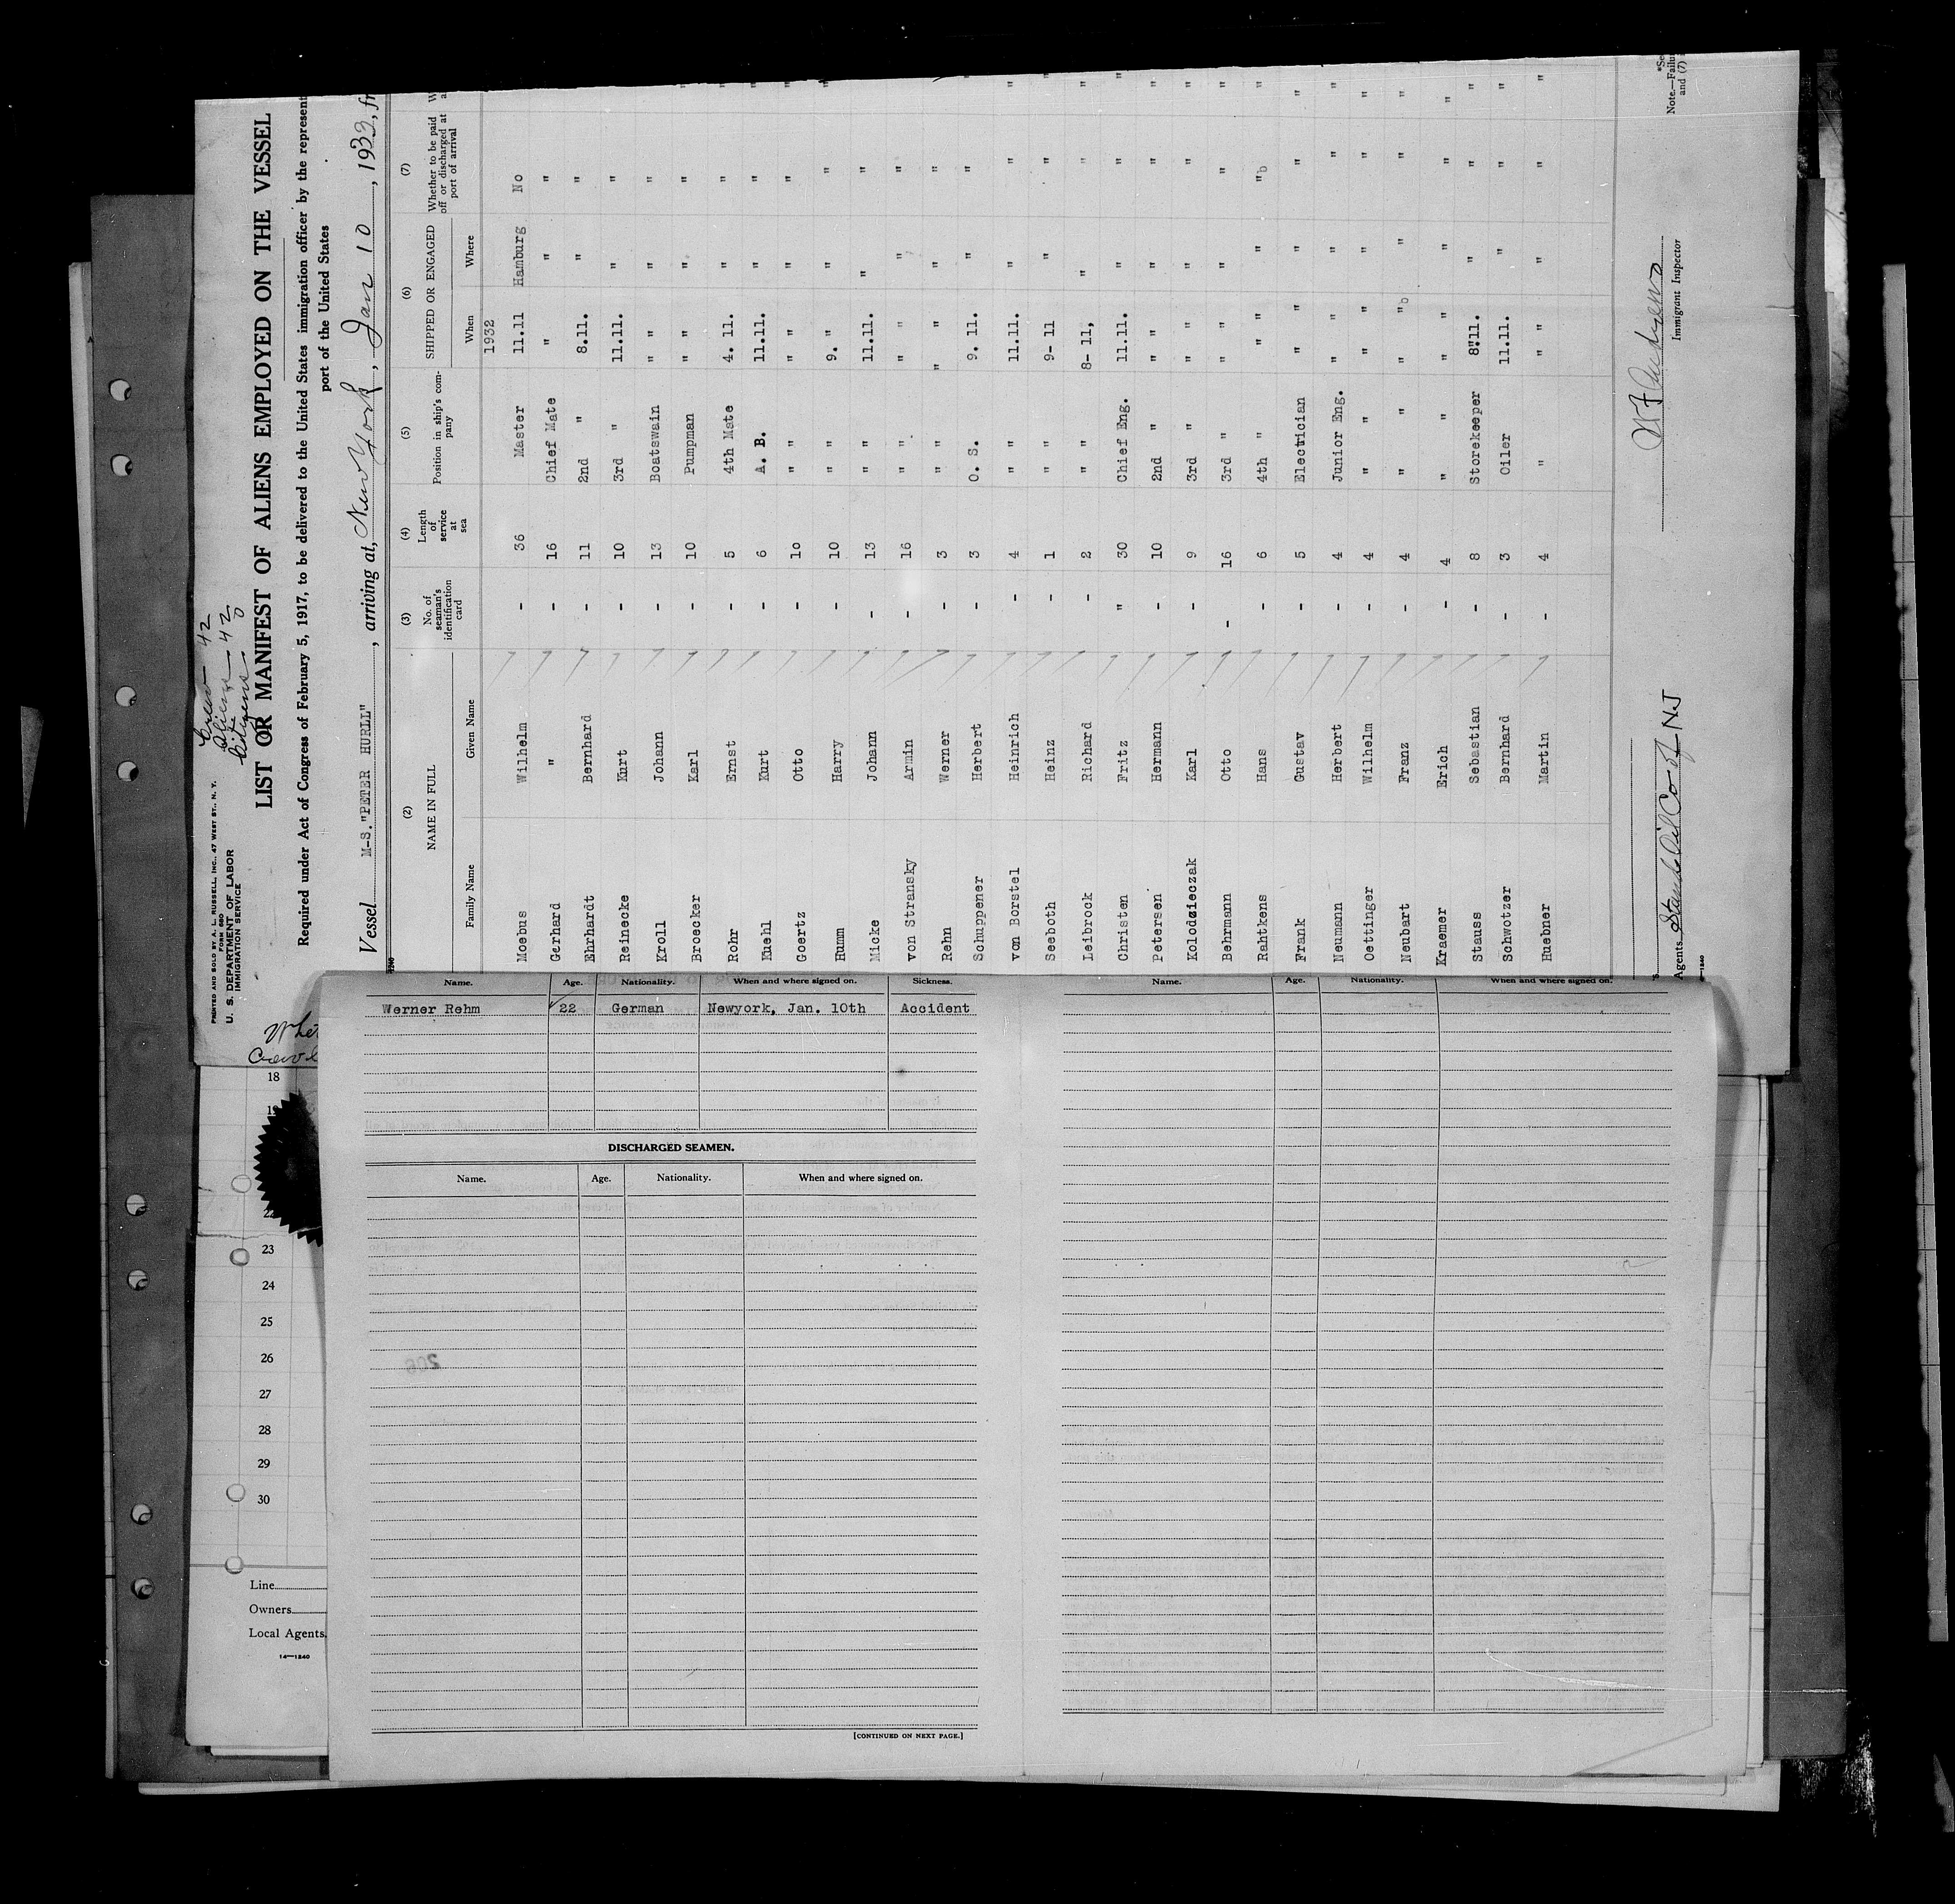 Crew 42
Aliens 42
Citizens 0
PRINTED AND SOLD BY A. L. RUSSELL, INC., 47 WEST ST., N. Y.
FORM 680
U. S. DEPARTMENT OF LABOR
IMMIGRATION SERVICE
LIST OR MANIFEST OF ALIENS EMPLOYED ON THE VESSEL
Required under Act of Congress of February 5, 1917, to be delivered to the United States immigration officer by the represent
port of the United States
Vessel M-S. "PETER HURLL", arriving at, New York, Jan 10, 1933, fr
(2) (3) (4) (5) (6) (7)
NAME IN FULL No. of seaman's identification card Length of service at sea Position in ship's company SHIPPED OR ENGAGED Whether to be paid off or discharged at port of arrival
Family Name Given Name When Where
1932
Moebus Wilhelm - 36 Master 11.11 Hamburg No
Gerhard " - 16 Chief Mate " " "
Ehrhardt Bernhard - 11 2nd " 8.11. " "
Reinecke Kurt - 10 3rd " 11.11. " "
Kroll Johann - 13 Boatswain " " " "
Broecker Karl - 10 Pumpman " " " " "
Rohr Ernst - 5 4th Mate 4. 11. " " "
Kuehl Kurt - 6 A. B. 11.11. " " "
Goertz Otto - 10 " " " " " " "
Humm Harry - 10 " " 9. " " " "
Micke Johann - 13 " " 11.11. " " "
von Stransky Armin - 16 " " " " " " "
Rehn Werner - 3 " " " " " " "
Schuppener Herbert - 3 O. S. 9. 11. " " "
von Borstel Heinrich - 4 " " 11.11. " " "
Seeboth Heinz - 1 " " 9- 11 " " "
Leibrock Richard - 2 " " 8- 11, " " "
Christen Fritz " 30 Chief Eng. 11.11. " " "
Petersen Hermann - 10 2nd " " " " " "
Kolodzieczak Karl - 9 3rd " " " " " "
Behrmann Otto - 16 3rd " " " " " "
Rahtkens Hans - 6 4th " " " " "b "
Frank Gustav - 5 Electrician " " " " "
Neumann Herbert - 4 Junior Eng. " " " " "
Oettinger Wilhelm - 4 " " " " " " "
Neubart Franz - 4 " " " "b " " "
Kraemer Erich - 4 " " " " " " "
Stauss Sebastian - 8 Storekeeper 8"11. " " "
Schwotzer Bernhard - 3 Oiler 11.11. " " "
Huebner Martin - 4 " " " " " "
Agents Stand Oil Co of NJ
Immigrant Inspector
*Se
Note.—Failu
and (7)
Name. Age. Nationality. When and where signed on. Sickness.
Werner Rehm 22 German Newyork, Jan. 10th Accident
DISCHARGED SEAMEN.
Name. Age. Nationality. When and where signed on.
[CONTINUED ON NEXT PAGE.]
Name. Age. Nationality. When and where signed on.
18
19
23
24
25
26
27
28
29
30
Line
Owners
Local Agents
14—1240